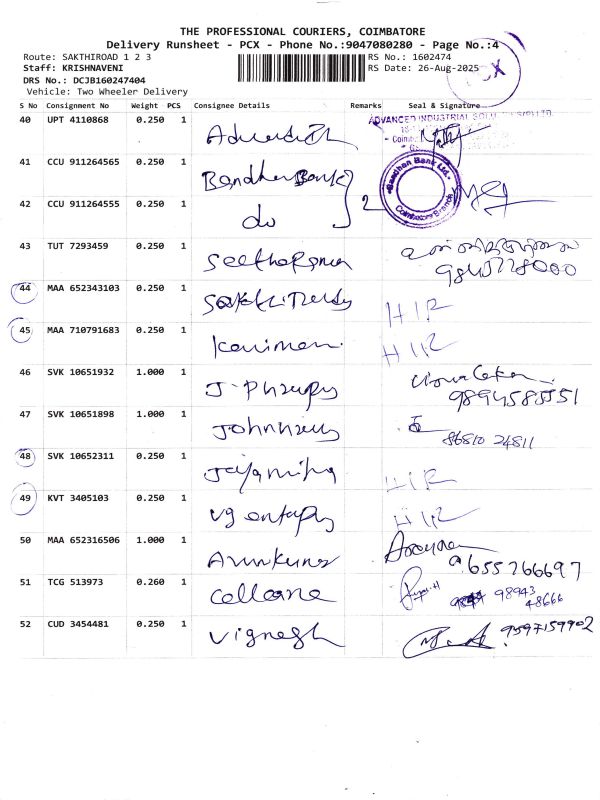 THE PROFESSIONAL COURIERS, COIMBATORE
Delivery Runsheet - PCX - Phone No.:9047080280 - Page No.:4
Route: SAKTHIROAD 1 2 3
RS No.: 1602474
Staff: KRISHNAVENI
RS Date: 26-Aug-2025
DRS No.: DCJB160247404
Vehicle: Two Wheeler Delivery
S No Consignment No Weight PCS Consignee Details Remarks Seal & Signature
40 UPT 4110868 0.250 1
ADVANCED INDUSTRIAL
41 CCU 911264565 0.250 1 Bandhan Bank
Bandhan Bank Ltd.
Coimbatore Branch
42 CCU 911264555 0.250 1 do 2
43 TUT 7293459 0.250 1
44 MAA 652343103 0.250 1 HIR
45 MAA 710791683 0.250 1 HIR
46 SVK 10651932 1.000 1
47 SVK 10651898 1.000 1
86810 24811
48 SVK 10652311 0.250 1 HIR
49 KVT 3405103 0.250 1 HIR
50 MAA 652316506 1.000 1 Arunkumar
9655766697
51 TCG 513973 0.260 1
98943
48666
52 CUD 3454481 0.250 1 Vignesh
9597159902